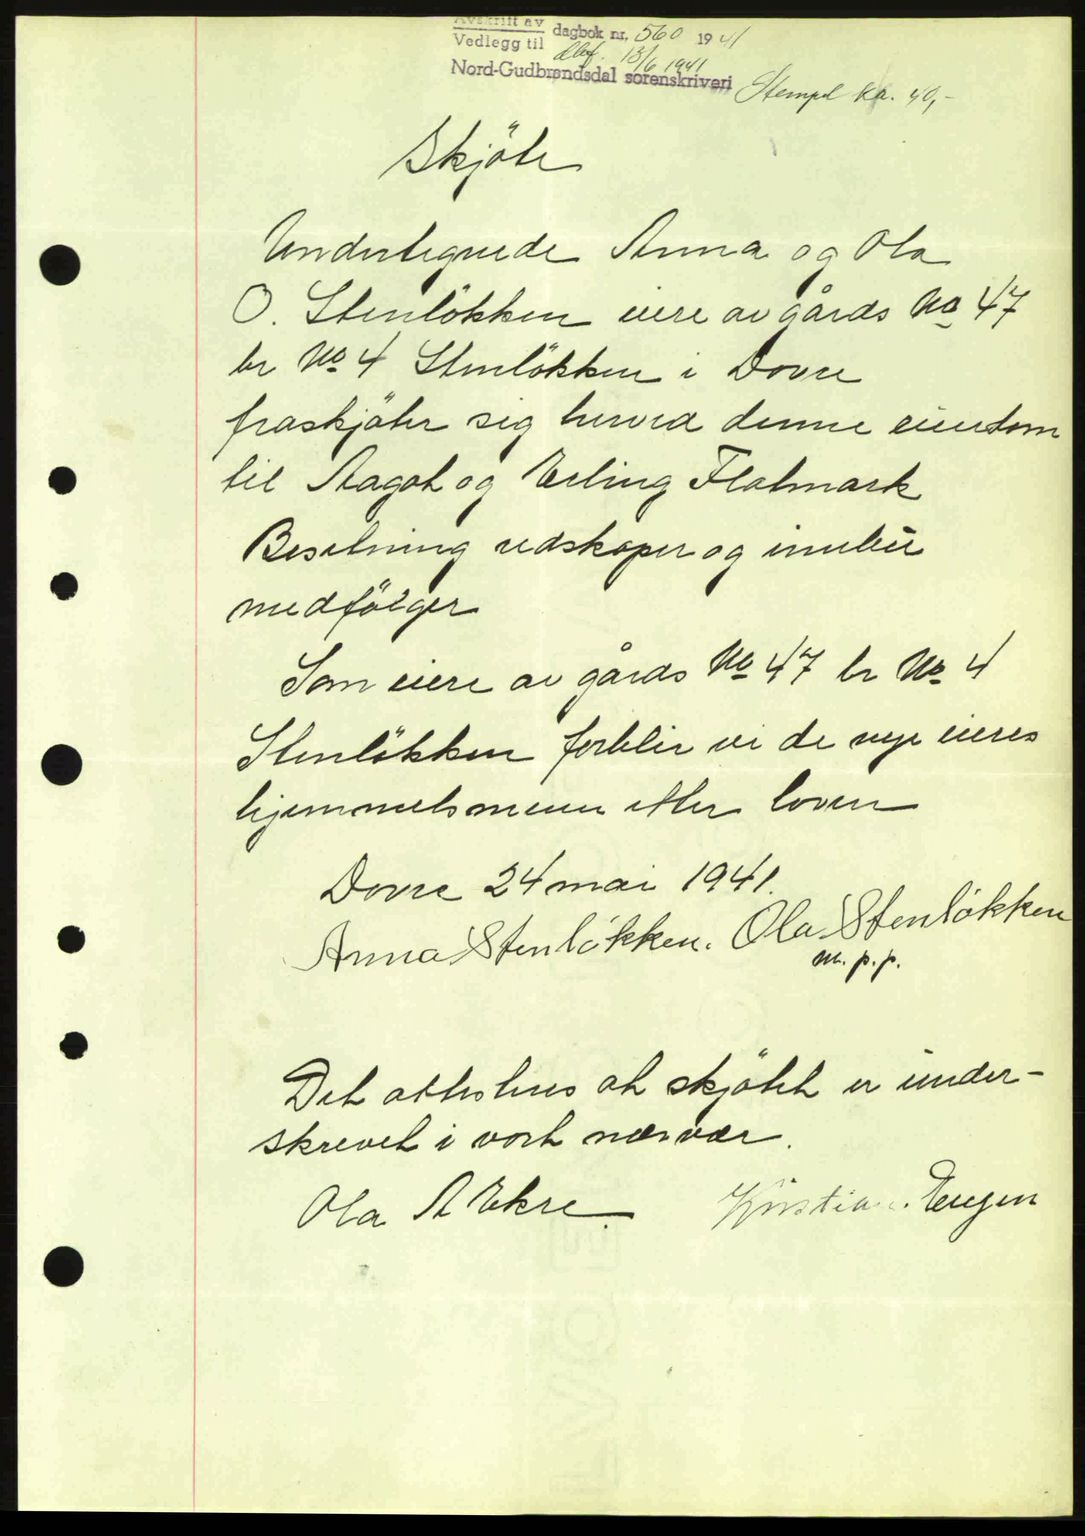 Avskrift av
Vedlegg til dagbok nr. 560 1941
dbf. 13/6 1941
Nord-Gudbrandsdal sorenskriveri
Stempel kr. 40,-
Skjöte
Undertegnede Anna og Ola
O. Stenlökken eiere av gårds No 47
br No 4 Stenlökken i Dovre
fraskjöter sig herved denne eiendom
til Aagot og Erling Flatmark
Besetning redskaper og innbu
medfölger
Som eiere av gårds No 47 br No 4
Stenlökken forblir vi de nye eieres
hjemmelsmenn etter loven
Dovre 24 mai 1941.
Anna Stenlökken. Ola Stenlökken
m. p. p.
Det attesteres at skjötet er under-
skrevet i vort nærvær.
Ola A Ekre. Kristian Engen